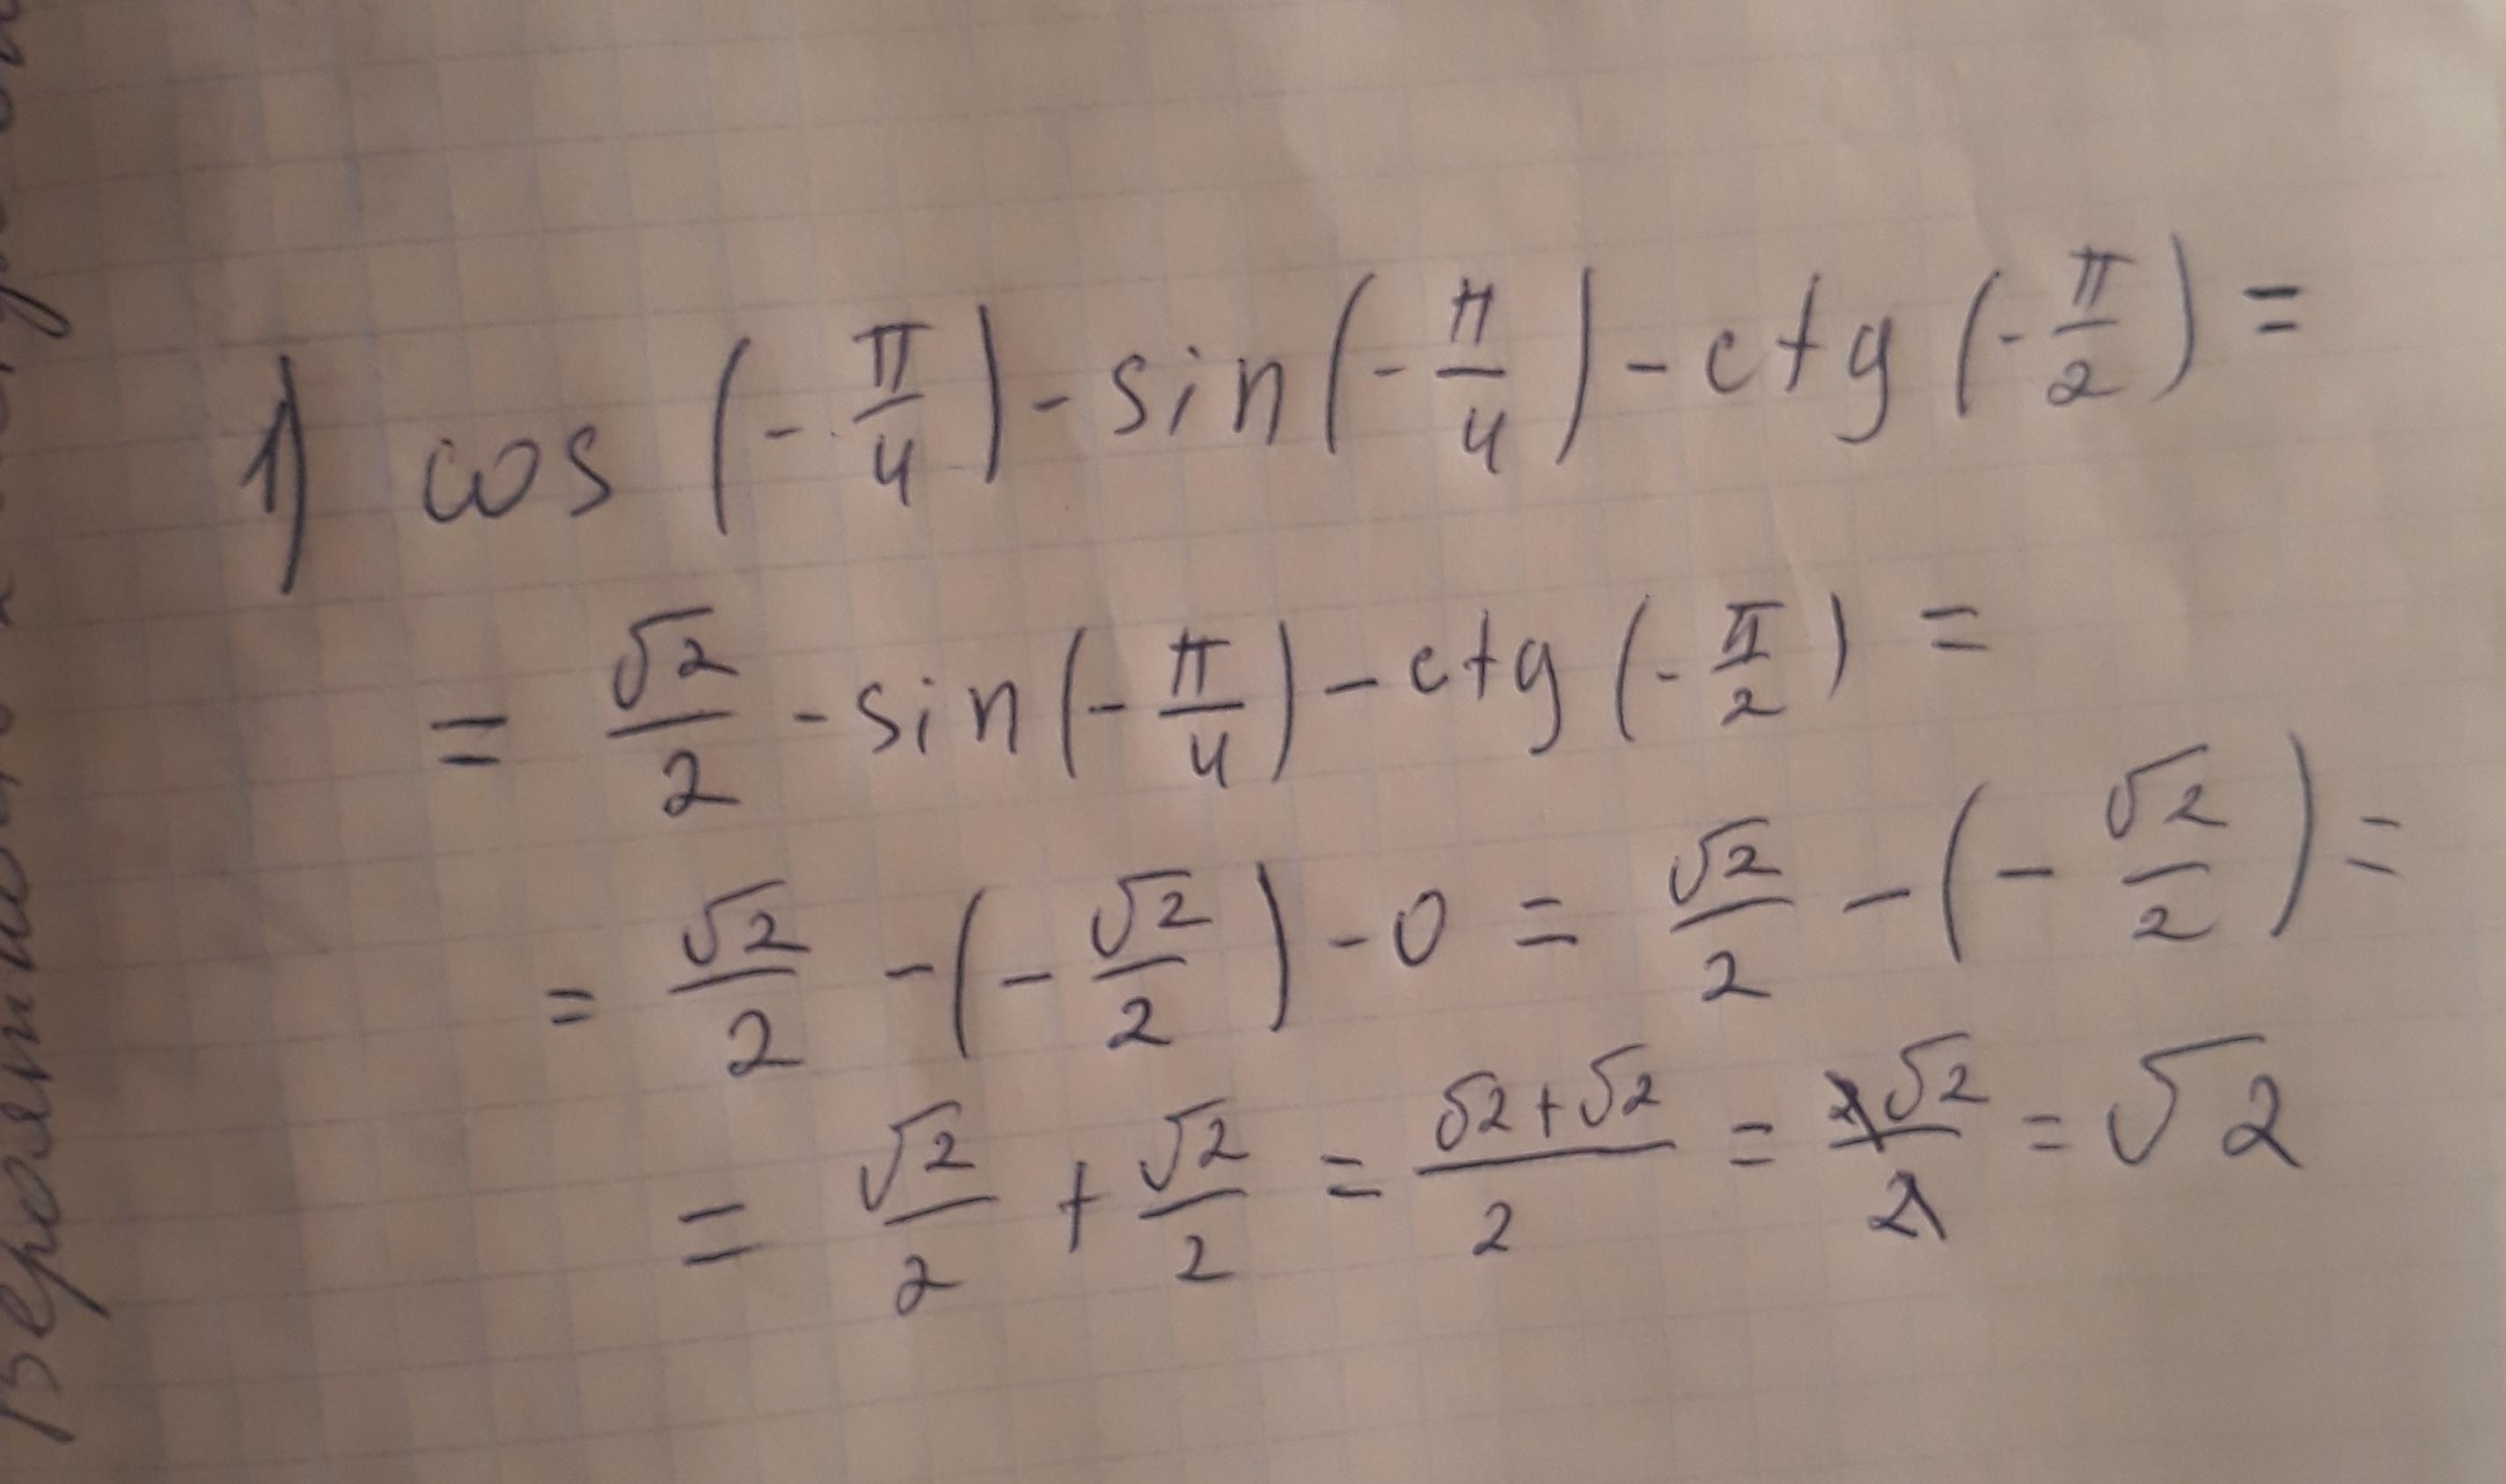 1) cos (-π/4) - sin (-π/4) - ctg (-π/2) =
= √2/2 - sin (-π/4) - ctg (-π/2) =
= √2/2 - (-√2/2) - 0 = √2/2 - (-√2/2) =
= √2/2 + √2/2 = (√2+√2)/2 = 2√2/2 = √2